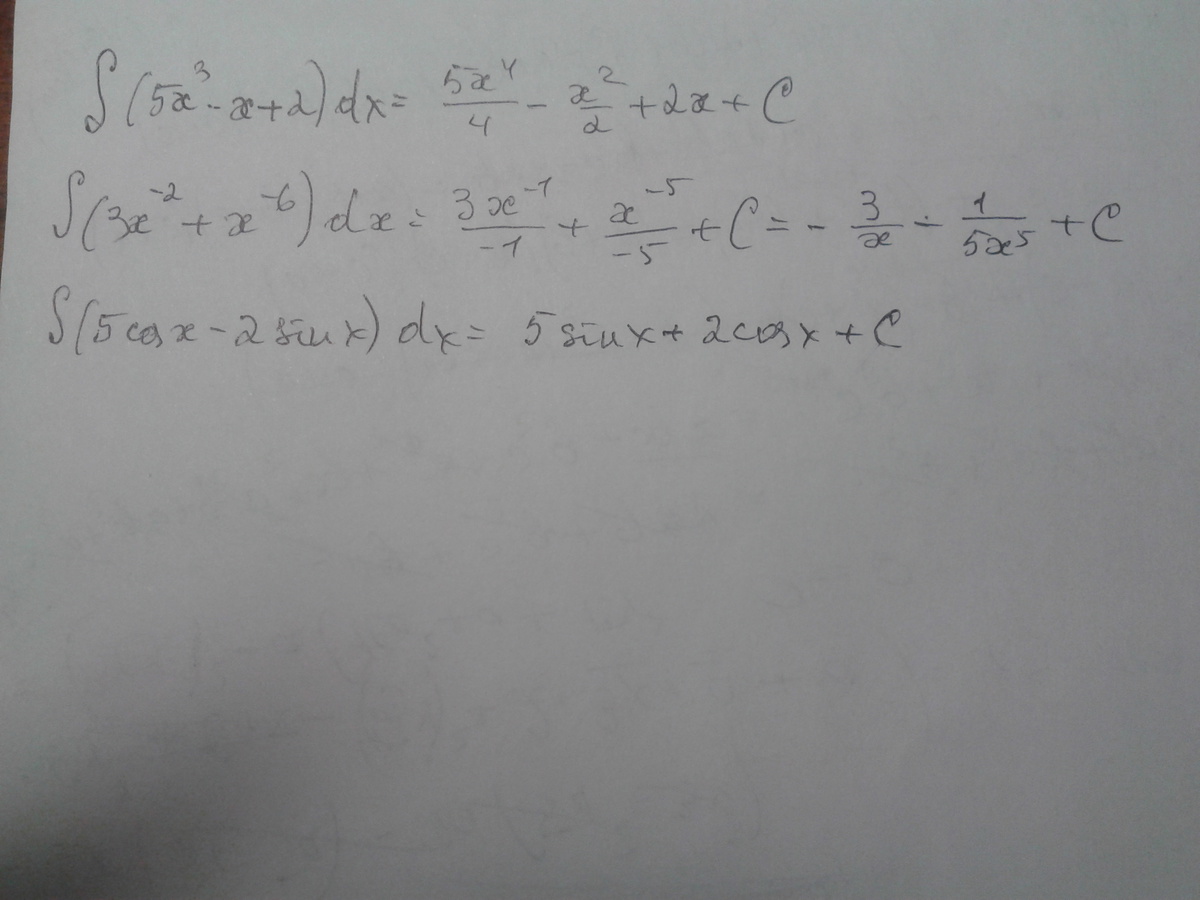 ∫(5x³ - x + 2) dx = 5x⁴/4 - x²/2 + 2x + C
∫(3x⁻² + x⁻⁶) dx = 3x⁻¹/-1 + x⁻⁵/-5 + C = - 3/x - 1/5x⁵ + C
∫(5 cos x - 2 sin x) dx = 5 sin x + 2 cos x + C